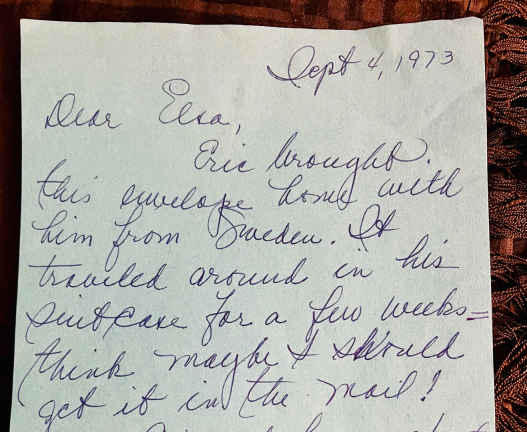 Sept 4, 1973
Dear Elsa,
Eric brought
this envelope home with
him from Sweden. It
traveled around in his
suitcase for a few weeks=
think maybe I should
get it in the mail!